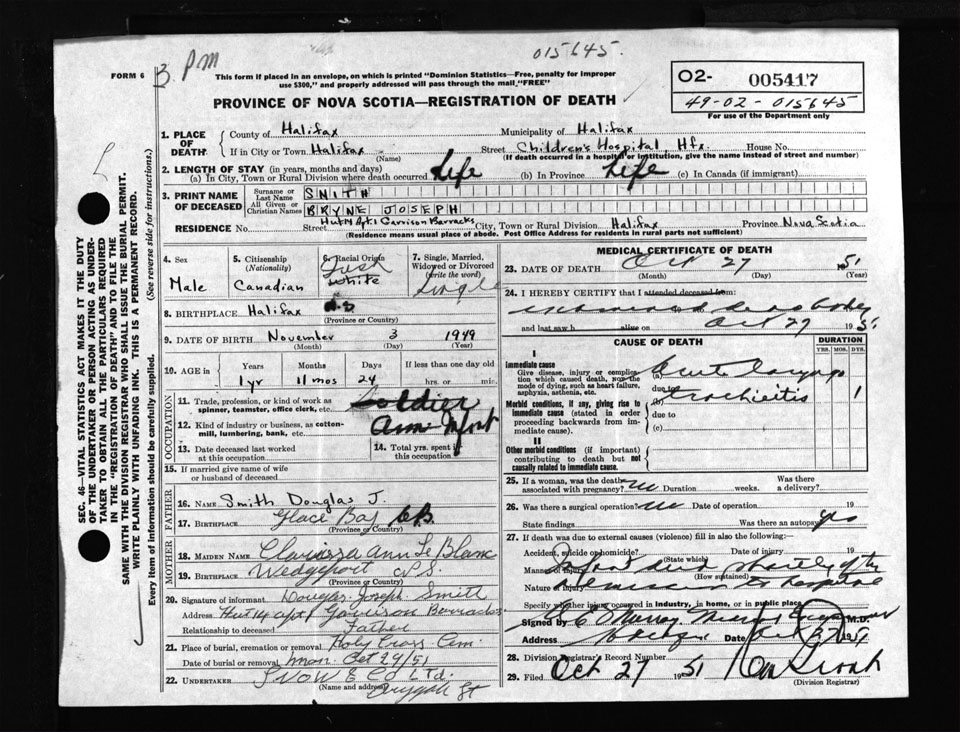 015645.
3 PM
FORM 6
This form if placed in an envelope, on which is printed "Dominion Statistics—Free, penalty for improper
use $300," and properly addressed will pass through the mail "FREE"
O2- 005417
49-02-015645
For use of the Department only
PROVINCE OF NOVA SCOTIA—REGISTRATION OF DEATH
SEC. 46—VITAL STATISTICS ACT MAKES IT THE DUTY
OF THE UNDERTAKER OR PERSON ACTING AS UNDER-
TAKER TO OBTAIN ALL THE PARTICULARS REQUIRED
IN THE "REGISTRATION OF DEATH" AND TO FILE THE
SAME WITH THE DIVISION REGISTRAR WHO SHALL ISSUE THE BURIAL PERMIT.
WRITE PLAINLY WITH UNFADING INK. THIS IS A PERMANENT RECORD.
Every item of information should be carefully supplied. (See reverse side for instructions.)
1. PLACE OF DEATH
County of Halifax Municipality of Halifax
If in City or Town Halifax Street Children's Hospital, Hfx. House No.
(Name) (If death occurred in a hospital or institution, give the name instead of street and number)
2. LENGTH OF STAY (in years, months and days)
(a) In City, Town or Rural Division where death occurred Life (b) In Province Life (c) In Canada (if immigrant)
3. PRINT NAME OF DECEASED
Surname or Last Name SMITH
All Given or Christian Names BRYNE JOSEPH
Hut 14 Apt 1 Garrison Barracks
RESIDENCE No. Street City, Town or Rural Division Halifax Province Nova Scotia
(Residence means usual place of abode. Post Office Address for residents in rural parts not sufficient)
4. Sex
Male
5. Citizenship
(Nationality)
Canadian
6. Racial Origin
Irish
White
7. Single, Married,
Widowed or Divorced
(write the word)
Single
8. BIRTHPLACE Halifax
(Province or Country)
9. DATE OF BIRTH November 3 1949
(Month) (Day) (Year)
10. AGE in Years Months Days If less than one day old
1yr 11 mos 24 hrs. or min.
OCCUPATION
11. Trade, profession, or kind of work as
spinner, teamster, office clerk, etc. Soldier
12. Kind of industry or business, as cotton-
mill, lumbering, bank, etc.
13. Date deceased last worked
at this occupation
14. Total yrs. spent in
this occupation
15. If married give name of wife
or husband of deceased
FATHER
16. NAME Smith Douglas J.
17. BIRTHPLACE Glace Bay C.B.
(Province or Country)
MOTHER
18. MAIDEN NAME Clarissa Ann Le Blanc
19. BIRTHPLACE Wedgeport N.S.
(Province or Country)
20. Signature of informant Douglas Joseph Smith
Address Hut 14 apt 1 Garrison Barracks
Relationship to deceased Father
21. Place of burial, cremation or removal Holy Cross Cem.
Date of burial or removal Mon. Oct 29/51
22. UNDERTAKER SNOW & Co Ltd.
(Name and address) Argyle St
MEDICAL CERTIFICATE OF DEATH
23. DATE OF DEATH Oct 27 1951
(Month) (Day) (Year)
24. I HEREBY CERTIFY that I attended deceased from:
examined dead body
and last saw h alive on Oct 27 1951
CAUSE OF DEATH
DURATION
YRS. MOS. DYS.
I
Immediate cause
Give disease, injury or complica-
tion which caused death, NOT the
mode of dying, such as heart failure,
asphyxia, asthenia, etc.
(a)
due to
(b) trachieitis 1
Morbid conditions, if any, giving rise to
immediate cause (stated in order
proceeding backwards from im-
mediate cause).
due to
(c)
II
Other morbid conditions (if important)
contributing to death but not
causally related to immediate cause.
25. If a woman, was the death
associated with pregnancy? no Duration weeks. Was there
a delivery?
26. Was there a surgical operation? no Date of operation 19
State findings Was there an autopsy? yes
27. If death was due to external causes (violence) fill in also the following:
Accident, suicide or homicide? Date of injury 19
(State which)
Manner of injury
(How sustained)
Nature of injury
Specify whether injury occurred in Industry, in home, or in public place
Signed by M.D.
Address Date Oct 27 1951
28. Division Registrar's Record Number
29. Filed Oct 27 1951
(Division Registrar)